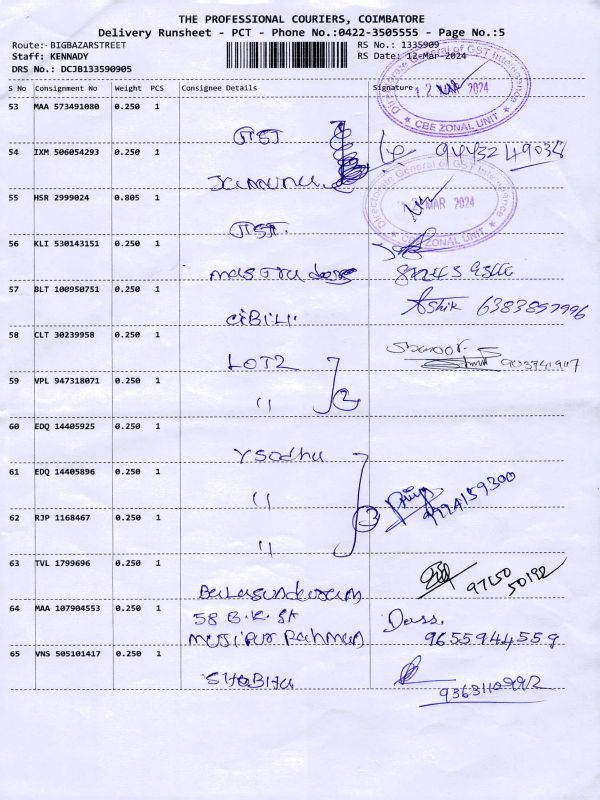 THE PROFESSIONAL COURIERS, COIMBATORE
Delivery Runsheet - PCT - Phone No.:0422-3505555 - Page No.:5
Route:- BIGBAZARSTREET
Staff: KENNADY
DRS No.: DCJB133590905
RS No.: 1335909
RS Date: 12-Mar-2024
S No Consignment No Weight PCS Consignee Details Signature
Directorate General of GST Intelligence
12 MAR 2024
★ CBE ZONAL UNIT ★
53 MAA 573491080 0.250 1
GST
54 IXM 506054293 0.250 1
Jamuna
55 HSR 2999024 0.805 1
GST
Directorate General of GST Intelligence
MAR 2024
★ CBE ZONAL UNIT ★
56 KLI 530143151 0.250 1
57 BLT 100950751 0.250 1
CIBILI
Ashik 6383857996
58 CLT 30239958 0.250 1
LOT2
59 VPL 947318071 0.250 1
" 2
60 EDQ 14405925 0.250 1
Ysodha
61 EDQ 14405896 0.250 1
"
62 RJP 1168467 0.250 1
" 3
63 TVL 1799696 0.250 1
Balasundaram
97150
50192
64 MAA 107904553 0.250 1
58 B.K. St
Mujipur Rahman
Dass.
9655944559
65 VNS 505101417 0.250 1
SHOBIHA
9363110992